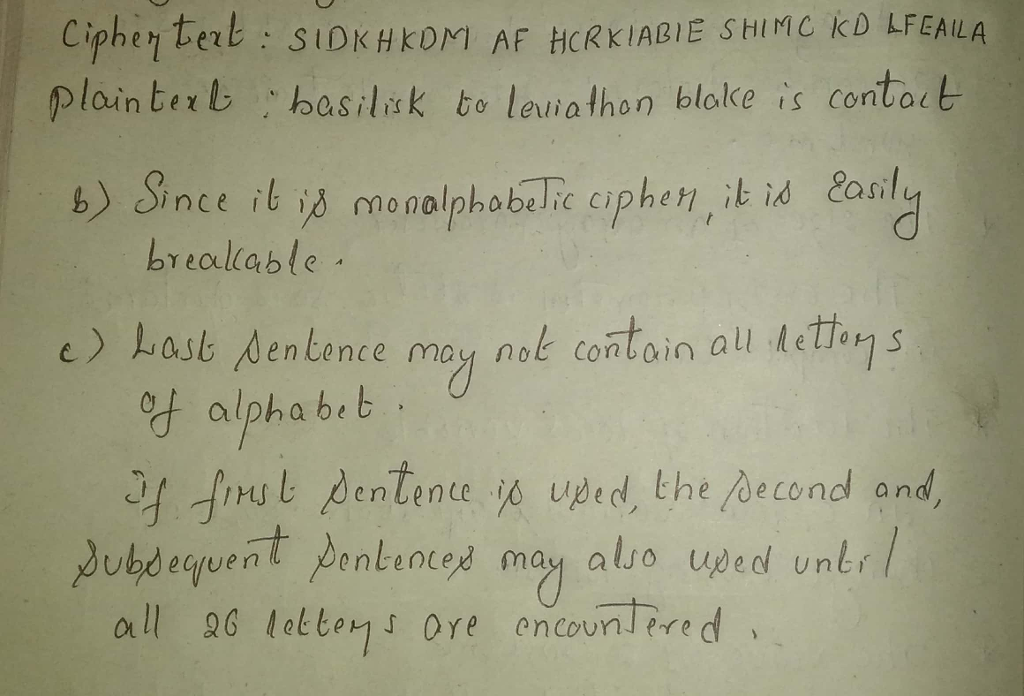 Ciphertext : SIDKHKDM AF HCRKIABIE SHIMC KD LFEAILA
Plaintext : basilisk to leviathan blake is contact
b) Since it is monalphabetic cipher, it is easily
breakable.
c) Last sentence may not contain all letters
of alphabet.
If first sentence is used, the second and,
subsequent sentences may also used until
all 26 letters are encountered.